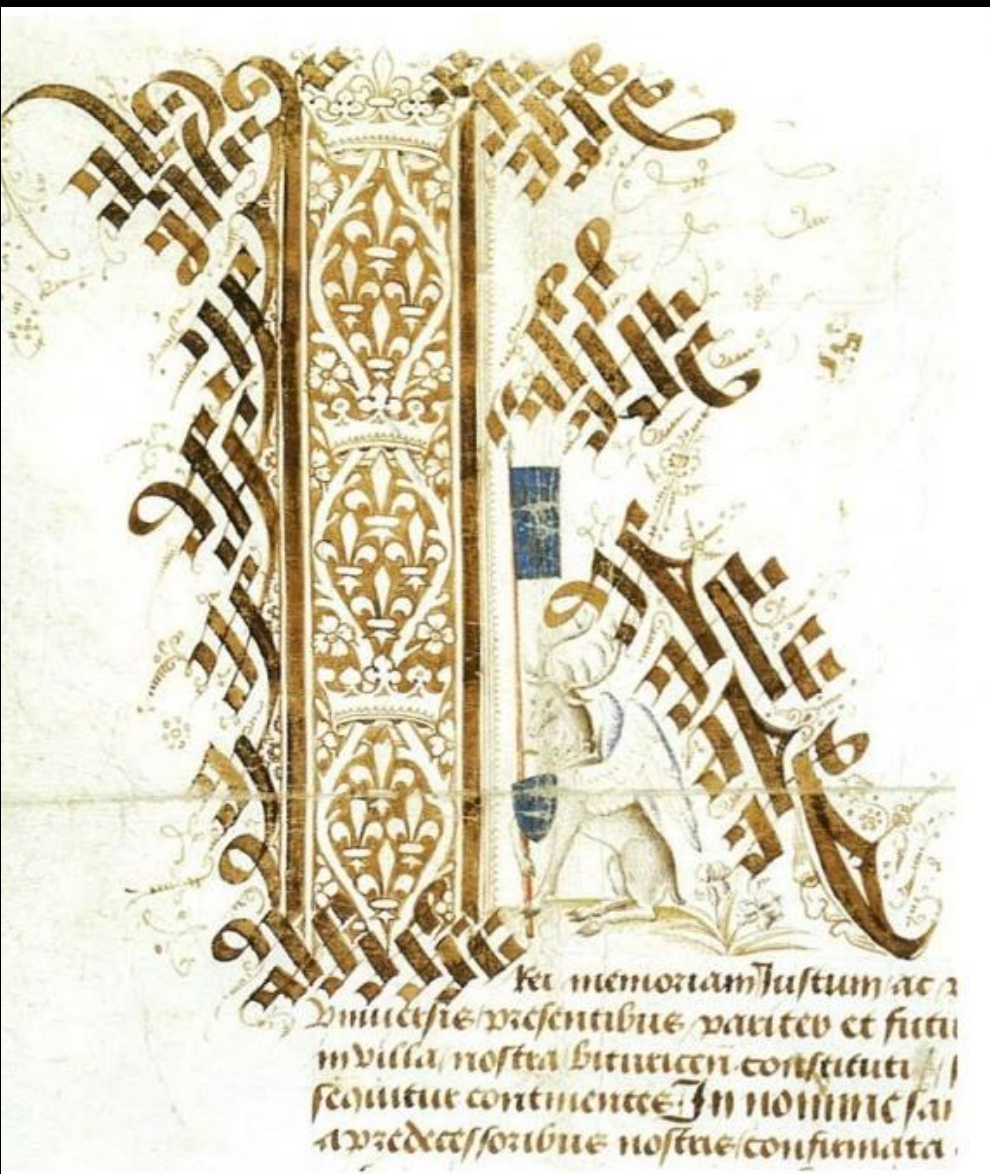 Rei memoriam Justum ac
Vniuersis presentibus pariter et futu
in villa nostra bituricen constituti
sequitur continentes In nomine sa
a predecessoribus nostris confirmata